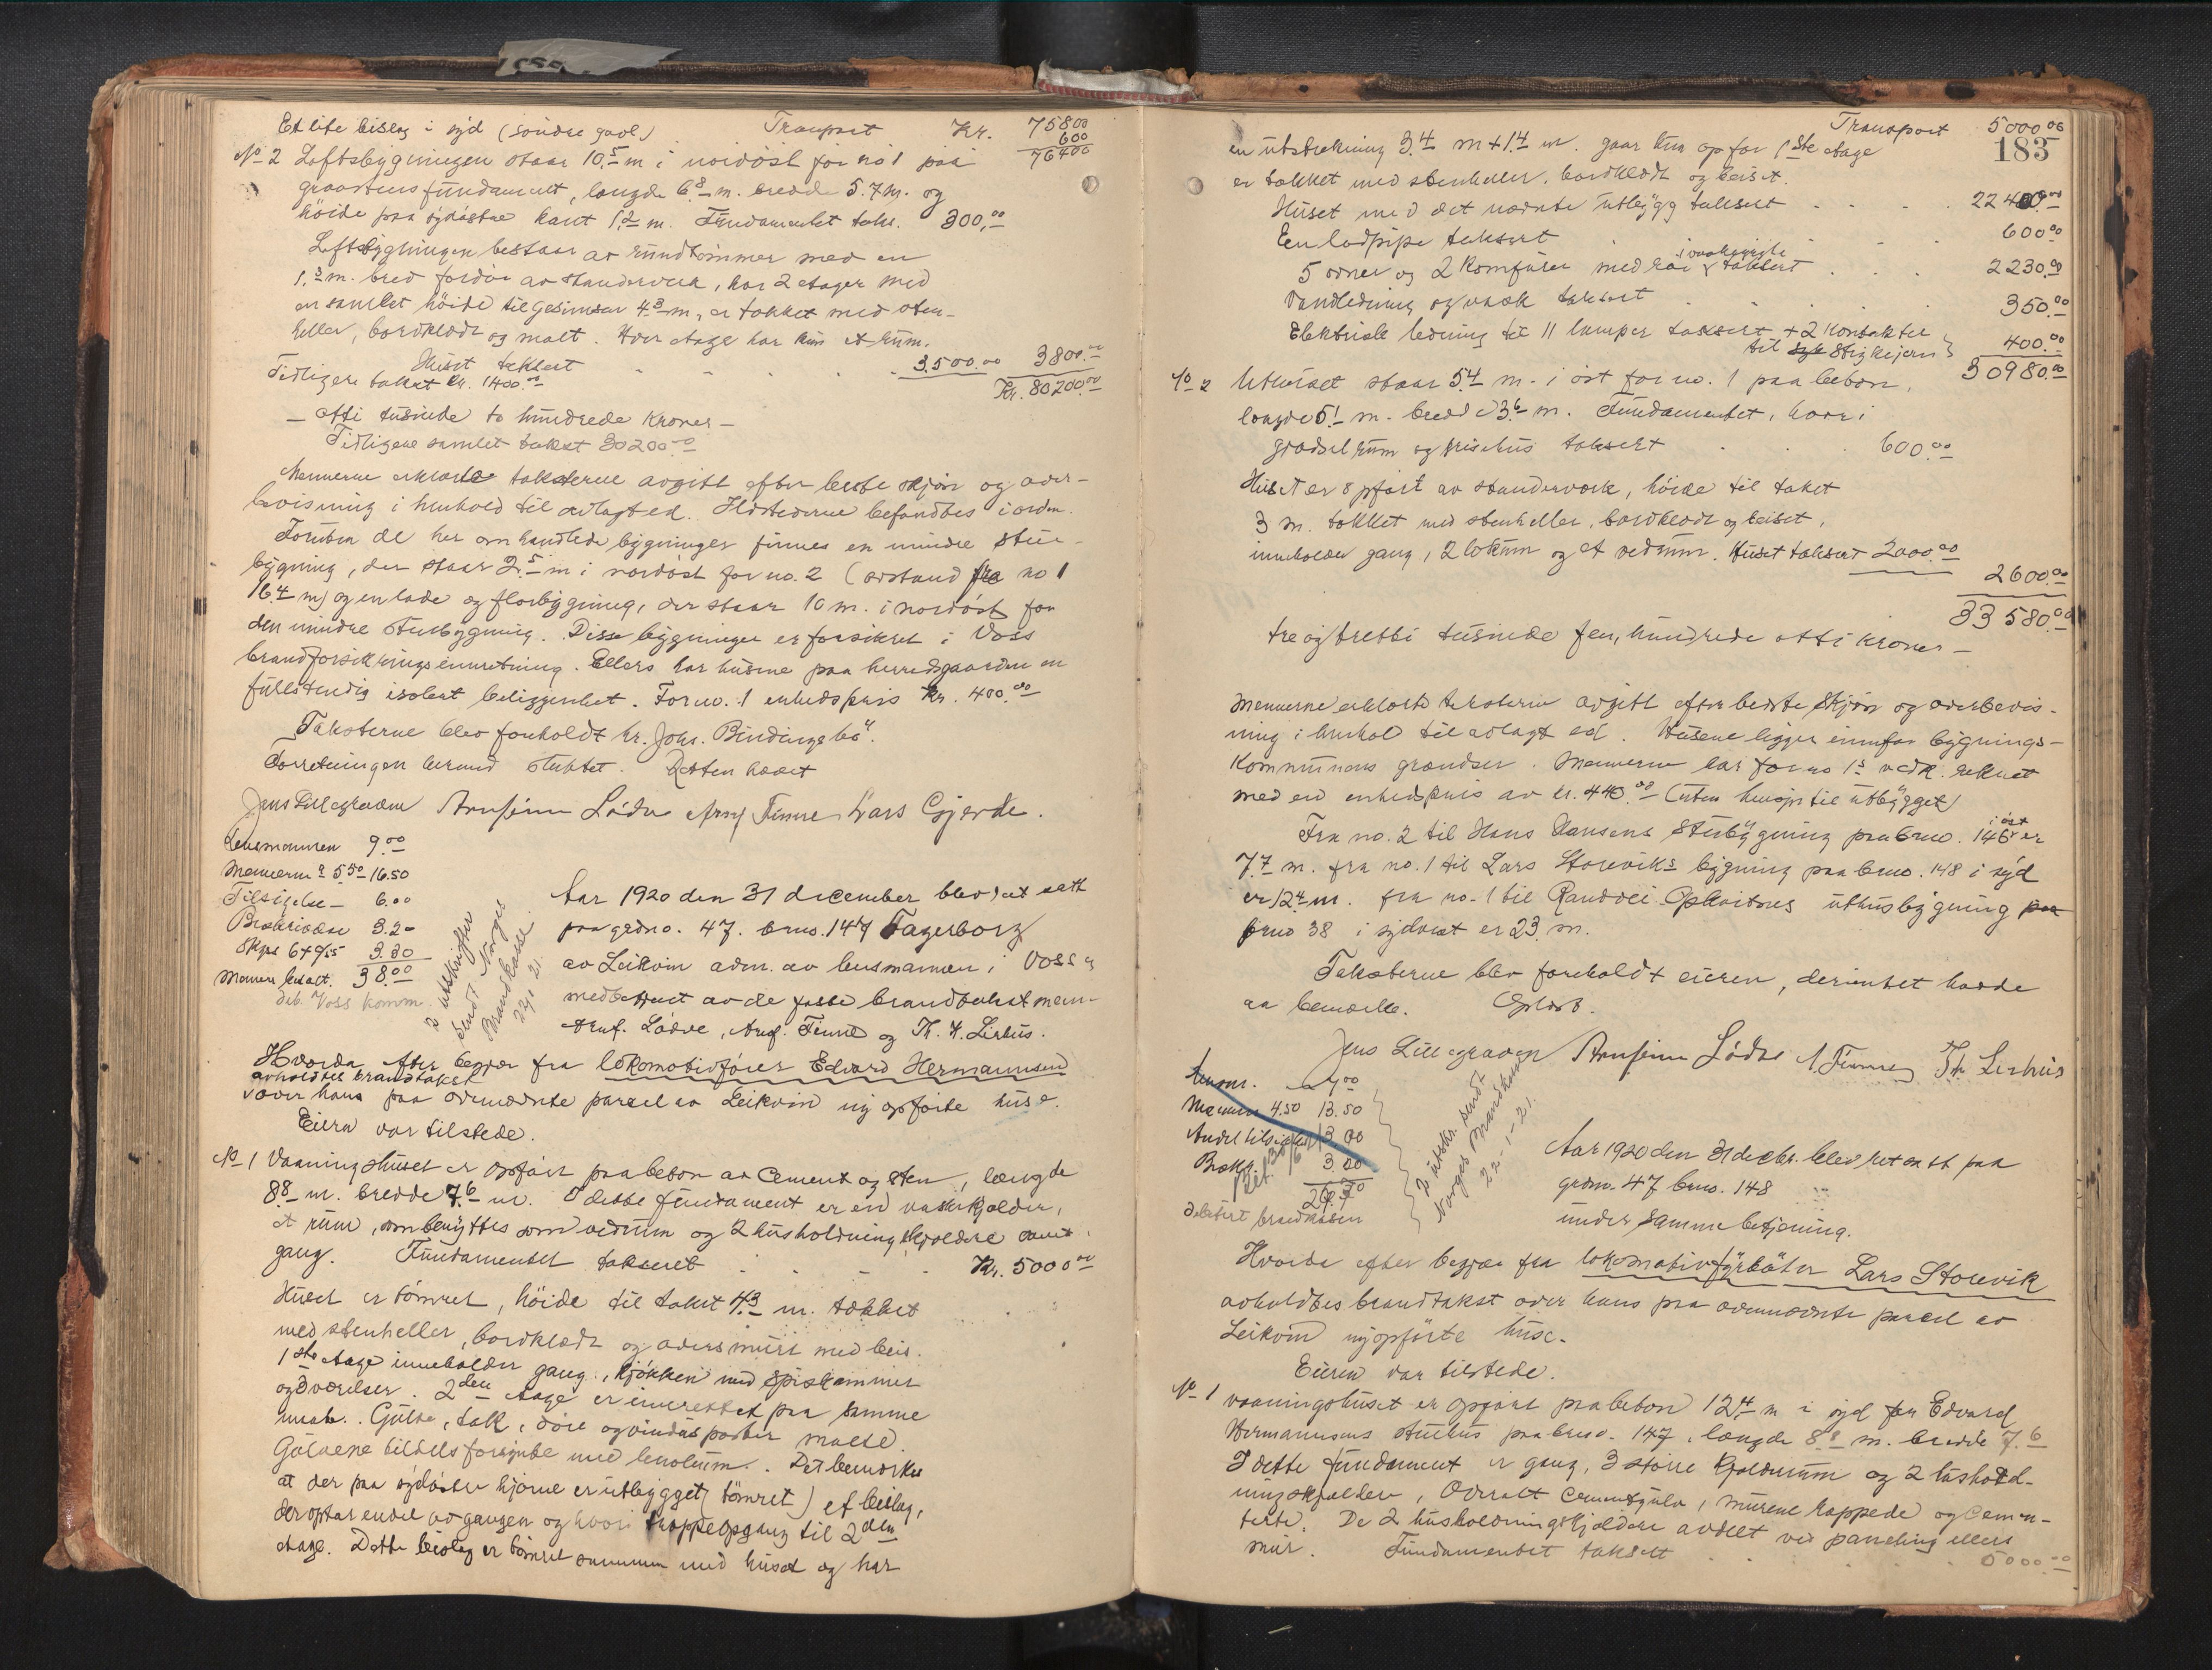 Et lite bislag i syd (søndre gavl) Transport Kr. 75800
600
No 2 Loftsbygningen staar 10.5 m i nordöst for no 1 paa 76400
graastensfundament, længde 6.8 m. bredde 5.7 m. og
höide paa sydöstre kant 1.2 m. Fundamentet takс. 300,00
Loftsbygningen bestaar av rundtömmer med en
1.3 m. bred fordör av standerverk, har 2 etager med
en samlet höide til gesimsen 4.3 m, er tækket med sten-
heller, bordklædt og malt. Hver etage har kun et rum.
Huset taksert 3.500.00 3800.00
Tidligere takst kr. 1400.00 Kr. 80200.00
— otti tusinde to hundrede kroner —
Tidligere samlet takst 30200.00
Mennerne erklærte taksterne avgitt efter beste skjön og over-
bevisning i henhold til avlagt ed. Ildstederne befandtes i orden.
Foruten de her omhandlede bygninger finnes en mindre stue-
bygning, der staar 2.5 m i nordöst for no. 2 (avstand fra no 1
16.4 m) og en lade og florbygning, der staar 10 m. i nordöst for
den mindre stuebygning. Disse bygninger er forsikret i Voss
brandforsikringsinnretning. Ellers har husene paa herredsgaarden en
fullstendig isolert beliggenhet. For no. 1 enhedspris kr. 400.00
Taksterne blev foreholdt hr. Johs. Bindingsbö.
Forretningen hermed sluttet. Retten hævet
Jens Lillegraven Arnfinn Lödve Arnf Finne Lars Gjerde.
Lensmannen 9.00
Mennerne a 5.50 16.50
Tilsigelse — 6.00
Beskrivelse 3.20
Skyss 6+9/55 3.30
Mennene betalt. 38.00
deb. Voss komm.
2 utskrifter
sendt Norges
Brandkasse
22/1 21.
Aar 1920 den 31 december blev ret satt
paa grdno. 47. brno. 147 Fagerborg
av Leikvin adm. av lensmannen i Voss
medbetjent av de faste brandtakstmenn
Arnf. Lödve, Arnf. Finne og Th. H. Lirhus.
Hvorda efter begjær fra lokomotivförer Edvard Hermannsen
avholdtes brandtakst
over hans paa ovennævnte parcel av Leikvin ny opförte huse.
Eieren var tilstede.
No 1 Vaaningshuset er opfört paa beton av cement og sten, længde
8.8 m. bredde 7.6 m. I dette fundament er en vaskekjælder,
et rum, som benyttes som vedrum og 2 husholdningskjældere samt
gang. Fundamentet takseret Kr. 5000.00
Huset er tömret, höide til taket 4.3 m. tækket
med stenheller, bordklædt og oversmurt med beis.
1ste etage inneholder gang, kjökken med spiskammer
og 3 værelser. 2den etage er innrettet paa samme
maate. Gulve, tak, döre og vinduspostер malte.
Gulvene tildels forsynte med lenoleum. Det bemerkes
at der paa sydöstre hjörne er utbygget (tömret) et beislag,
der optar endel av gangen og hvori trappeopgang til 2den
etage. Dette beislag er tömret sammen med huset og har
Transport 5000.00
183
en utstrekning 3.4 m + 1.4 m. gaar kun op for 1ste etage
er tækket med stenheller, bordklædt og beiset.
Huset med det nævnte utbygg taksert 22400.00
En ladpipe taksert 600.00
5 ovner og 2 komfurer med rör taksert 2230.00
Vandledning og vask taksert 350.00
Elektrisk ledning til 11 lamper taksert + 2 kontakter
til strykejern 400.00
30980.00
No 2 Uthuset staar 5.4 m. i öst for no. 1 paa beton,
længde 5.1 m. bredde 3.6 m. Fundamentet, hvori
gjødselrum og grisehus taksert 600.00
Huset er opfört av standerverk, höide til taket
3 m. tækket med stenheller, bordklædt og beiset,
inneholder gang, 2 lokum og et vedrum. Huset taksert 2000.00
2600.00
33580.00
tre og tretti tusinde fem hundrede otti kroner —
Mennerne erklærte taksterne avgitt efter beste skjön og overbevis-
ning i henhold til avlagt ed. Husene ligger innfor bygnings-
kommunens grændser. Mennerne har for no 1s vedk. reknet
med en enhedspris av kr. 440.00 (uten hensyn til utbygget)
Fra no. 2 til Hans Hansens stuebygning paa brno. 146 i öst er
7.7 m. fra no. 1 til Lars Storeviks bygning paa brno. 148 i syd
er 12.4 m. fra no. 1 til Randvei Opheitnes uthusbygning paa
brno 38 i sydvest er 23 m.
Taksterne blev foreholdt eieren, der intet hadde
aa bemerke. Oplæst.
Jens Lillegraven Arnfinn Lödve A. Finne Th Lirhus
Lensm. 7.00
Mennene 4.50 13.50
Andel tilsigelse 3.00
Beskr. 3.00
26.50
Debitert brandkassen
2 utskr. sendt
Norges Brandkasse
22-1-21.
Aar 1920 den 31 decbr. blev ret satt paa
grdno. 47 brno. 148
under samme betjening.
Hvorda efter begjær fra lokomotivfyrböter Lars Storevik
avholdtes brandtakst over hans paa ovennævnte parcel av
Leikvin nyopförte huse.
Eieren var tilstede.
No 1 vaaningshuset er opfört paa beton 12.4 m i syd for Edvard
Hermannsens stuehus paa brno. 147, længde 8.8 m. bredde 7.6
I dette fundament er gang, 3 större kjelderrum og 2 hushold-
ningskjeldere, Overalt cementgulv, murene kappede og cemen-
terte. De 2 husholdningskjeldere avdelt ved paneling ellers
mur. Fundamentet taksert 5000.00